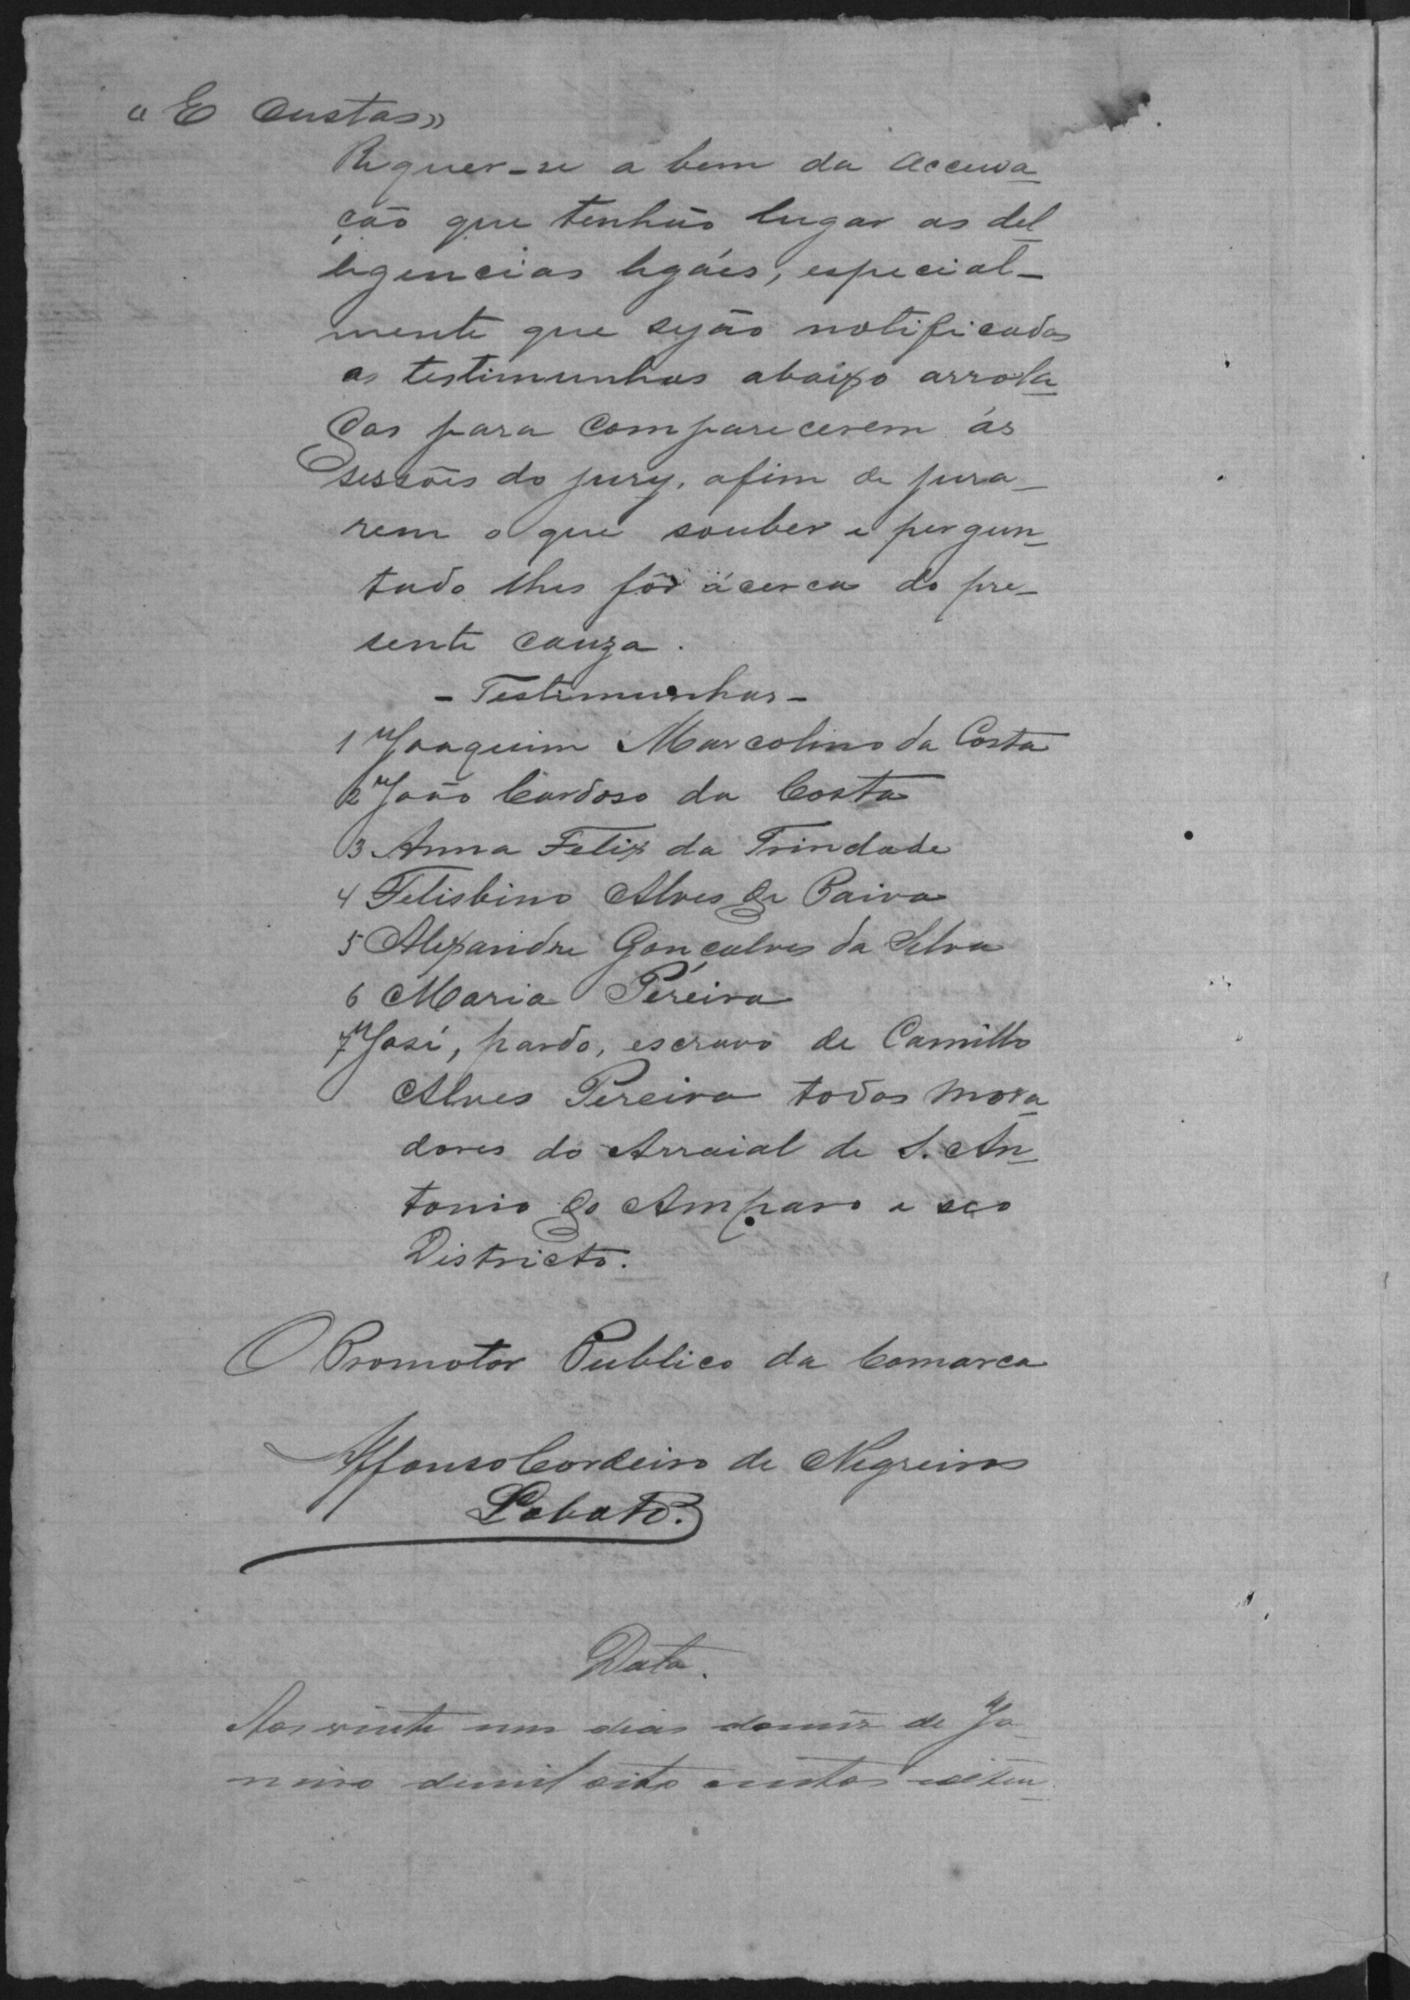 "E Custas"
Requer-se a bem da accusa-
ção que tenhão lugar as del
ligencias legáes, especial-
mente que sejão notificadas
as testimunhas abaixo arrola-
das para comparecerem ás
sessões do jury, afim de jura-
rem o que souber e pergun-
tado lhes fôr ácerca do pre-
sente cauza.
- Testimunhas -
1 Joaquim Marcolino da Costa
2 João Cardoso da Costa
3 Anna Felix da Trindade
4 Felisbino Alves de Paiva
5 Alexandre Gonçalves da Silva
6 Maria Pereira
7 José, pardo, escravo de Camillo
Alves Pereira todos mora-
dores do Arraial de S. An-
tonio do Amparo e seo
Districto.
O Promotor Publico da Comarca
Affonso Cordeiro de Negreiros
Lobato.
Data.
Aos vinte um dias do mez de Ja-
neiro de mil oito centos e oiten-